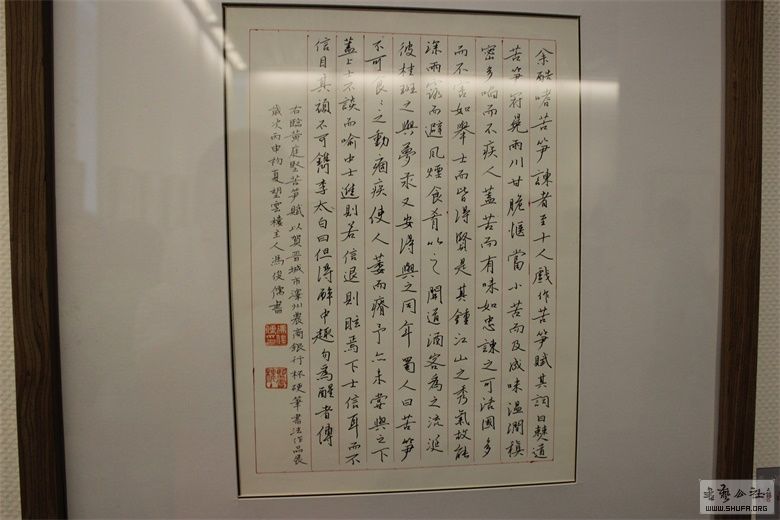 余酷嗜苦笋谏者至十人戏作苦笋赋其词曰僰道
苦笋冠冕两川甘脆惬当小苦而及成味温润缜
密多啖而不疾人盖苦而有味如忠谏之可活国多
而不害如举士而皆得贤是其钟江山之秀气故能
深雨露而避风烟食肴以之开道酒客为之流涎
彼桂斑之与梦永又安得与之同年蜀人曰苦笋
不可食食之动痼疾使人萎而瘠予亦未尝与之下
盖上士不谈而喻中士进则若信退则眩焉下士信耳而不
信目其顽不可镌李太白曰但得醉中趣勿为醒者传
右临黄庭坚苦笋赋以贺晋城市泽州农商银行杯硬笔书法作品展
岁次丙申初夏望云楼主人冯俊儒书
WWW.SHUFA.ORG